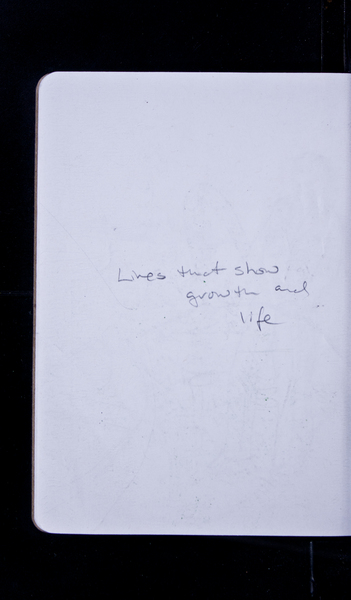 Lines that show
growth and
life